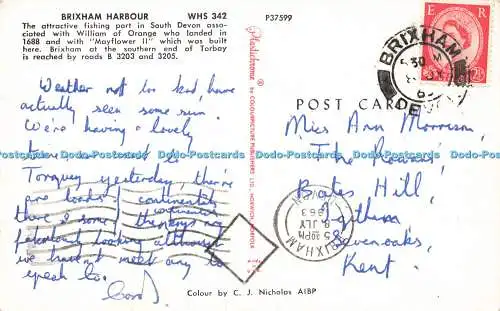 BRIXHAM HARBOUR WHS 342
The attractive fishing part in South Devon asso-
ciated with William of Orange who landed in
1688 and with "Mayflower II" which was built
here. Brixham at the southern end of Torbay
is reached by roads B 3203 and 3205.
P37599
Weather not too bad, have
actually seen some sun.
We're having a lovely
time. Went to
Torquay yesterday, there're
loads
there & some
fabulously looking although
we haven't met any to
speak to.
Carol
Plastichrome ®
by COLOURPICTURE PUBLISHERS LTD.
POST CARD
Miss Ann Morrison,
The
Bates Hill,
Ightham
Sevenoaks,
Kent.
E R
BRIXHAM
DEVON
BRIXHAM
5 30PM
8 JLY
1963
DEVON
Colour by C. J. Nicholas AIBP
Dodo-Postcards Dodo-Postcards Dodo-Postcards Dodo-Postcards